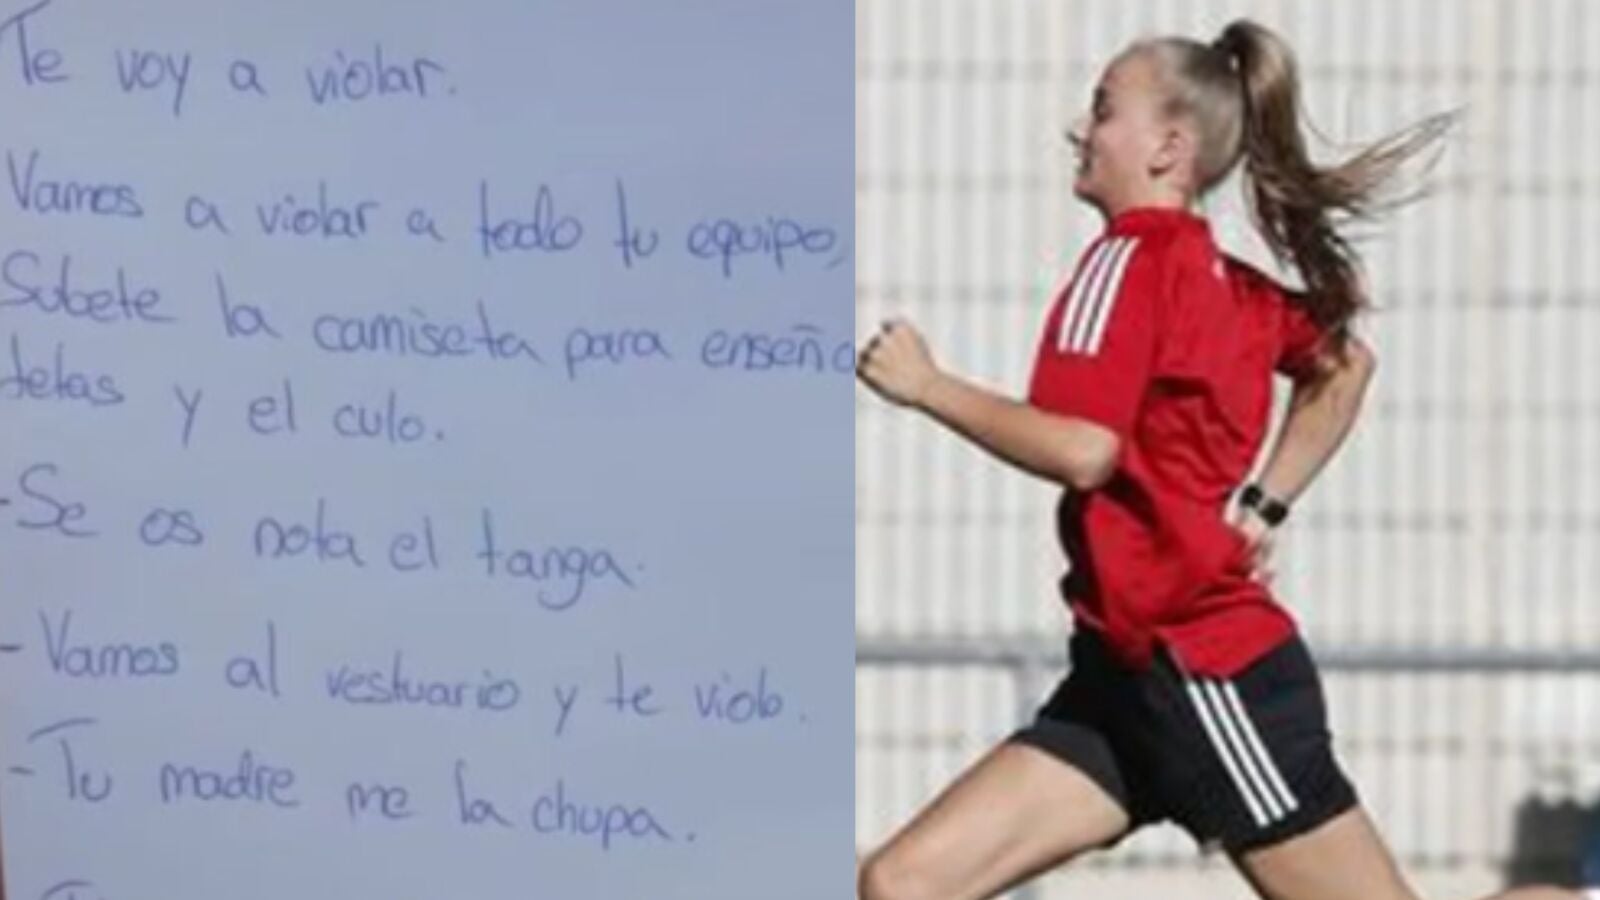 Te voy a violar.
Vamos a violar a todo tu equipo,
Subete la camiseta para enseña
tetas y el culo.
-Se os nota el tanga.
- Vamos al vestuario y te violo.
- Tu madre me la chupa.